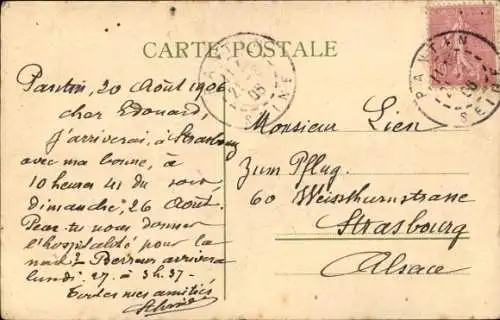 CARTE POSTALE
PANTIN
SEINE
PANTIN
SEINE
Pantin, 20 Août 1906
cher Edouard,
j'arriverai, à Strasbourg
avec ma bonne, à
10 heures 41 du soir
dimanche, 26 Août.
Peux tu nous donner
l'hospitalité pour la
nuit?
arrivera
lundi. 27. à 3h.37.
Toutes mes amitiés
Monsieur Lien
Zum Pflug.
60 Weissthurmstrasse
Strasbourg
Alsace